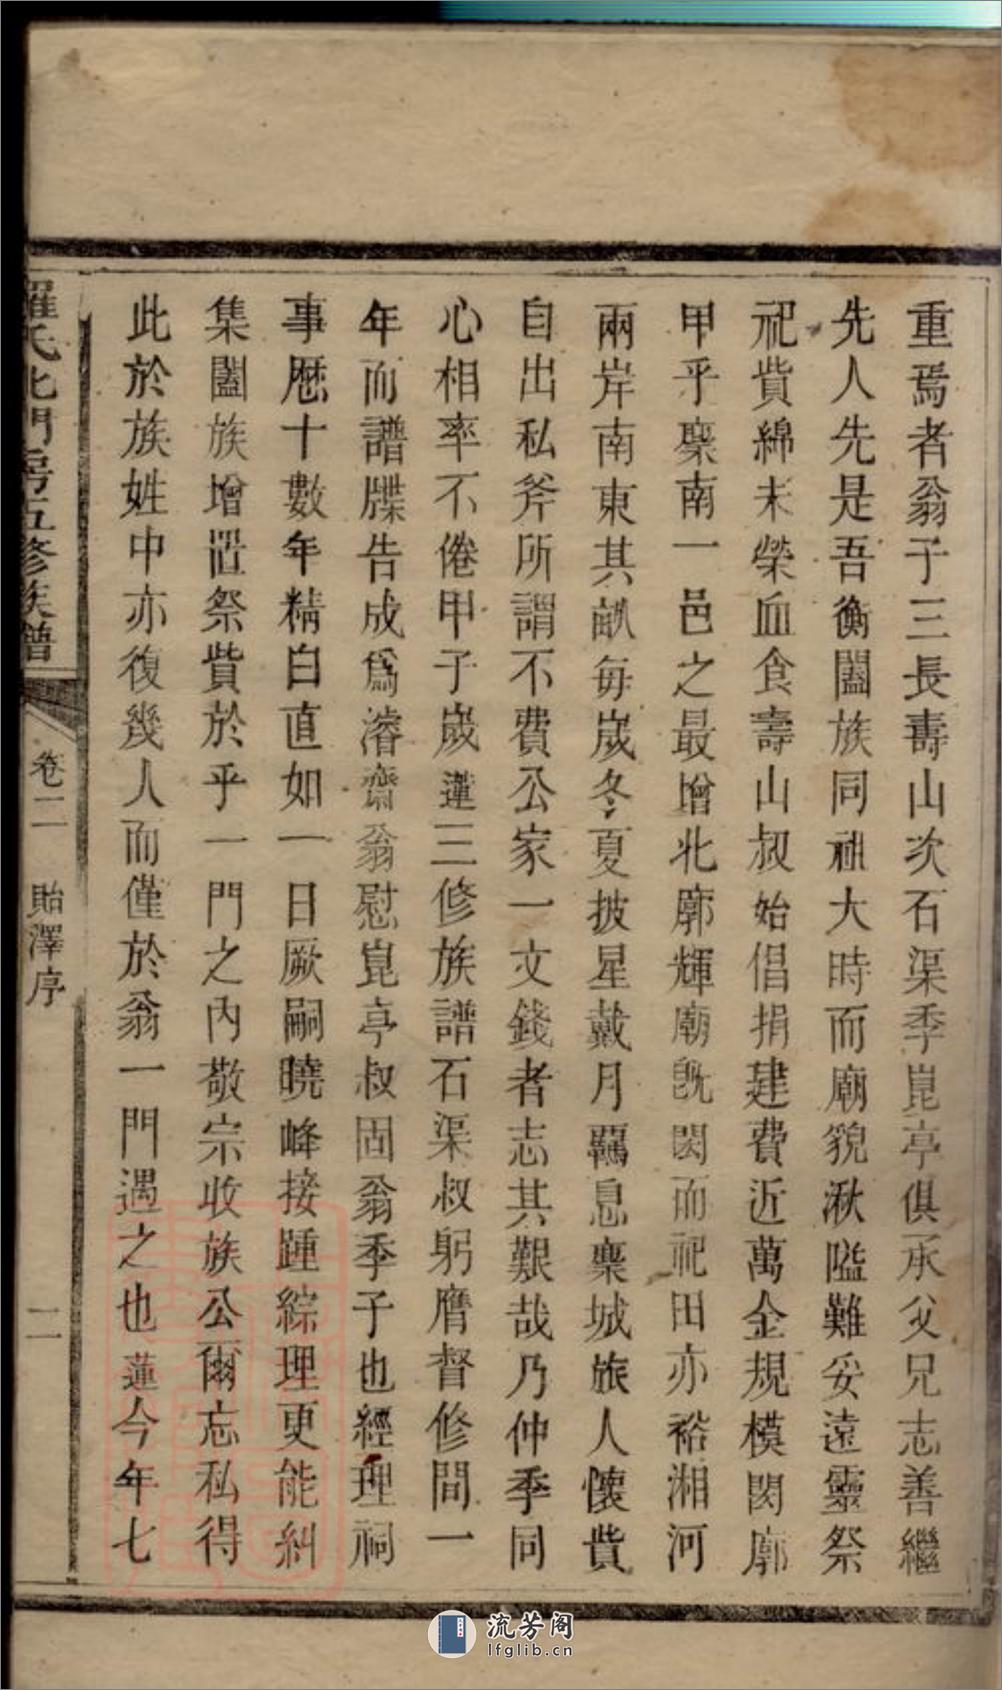 重焉者翁子三長壽山次石渠季崑亭俱承父兄志善繼
先人先是吾衡闔族同祖大時而廟貌湫隘難妥遠靈祭
祀貲綿未榮血食壽山叔始倡捐建費近萬金規模閎廓
甲乎稾南一邑之最增北廓輝廟旣閎而祀田亦裕湘河
兩岸南東其畝每嵗冬夏披星戴月羈息稾城旅人懷貲
自出私斧所謂不費公家一文錢者志其艱哉乃仲季同
心相率不倦甲子嵗蓮三修族譜石渠叔躬膺督修間一
年而譜牒告成爲濬齋翁慰崑亭叔固翁季子也經理祠
事厯十數年精白直如一日厥嗣曉峰接踵綜理更能糾
集闔族增置祭貲於乎一門之內敬宗收族公爾忘私得
此於族姓中亦復幾人而僅於翁一門遇之也蓮今年七
羅氏北門房五修族譜
卷二 貽澤序
二
流芳阁
lfglib.cn